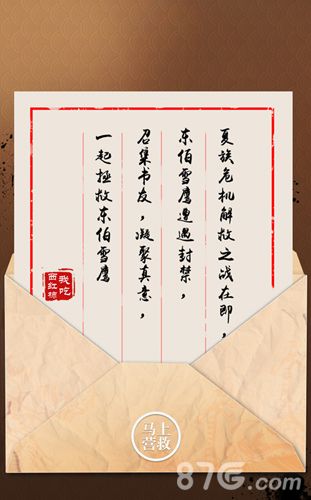 夏族危机解救之战在即，
东伯雪鹰遭遇封禁，
召集书友，凝聚真意，
一起拯救东伯雪鹰
我吃
西红柿
马上
营救
87G.com